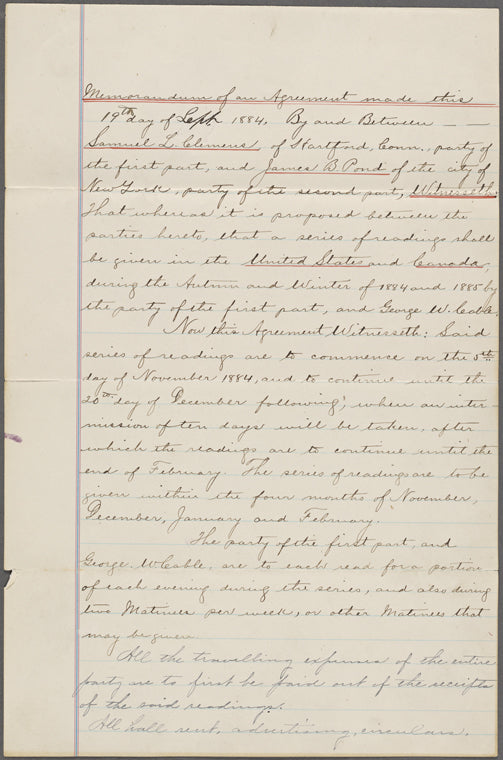 Memorandum of an Agreement made this
19th day of Sept 1884. By and Between
Samuel L. Clemens of Hartford, Conn., party of
the first part, and James B. Pond of the city of
New York, party of the second part, Witnesseth:
That whereas it is proposed between the
parties hereto, that a series of readings shall
be given in the United States and Canada,
during the Autumn and Winter of 1884 and 1885 by
the party of the first part, and George W. Cable.
Now this Agreement Witnesseth: Said
series of readings are to commence on the 5th
day of November 1884, and to continue until the
20th day of December following, when an inter
mission of ten days will be taken, after
which the readings are to continue until the
end of February. The series of readings are to be
given within the four months of November,
December, January and February.
The party of the first part, and
George W Cable, are to each read for a portion
of each evening during the series, and also during
two Matinees per week, or other Matinees that
may be given.
All the travelling expenses of the entire
party are to first be paid out of the receipts
of the said readings.
All hall rent, advertising, circulars,